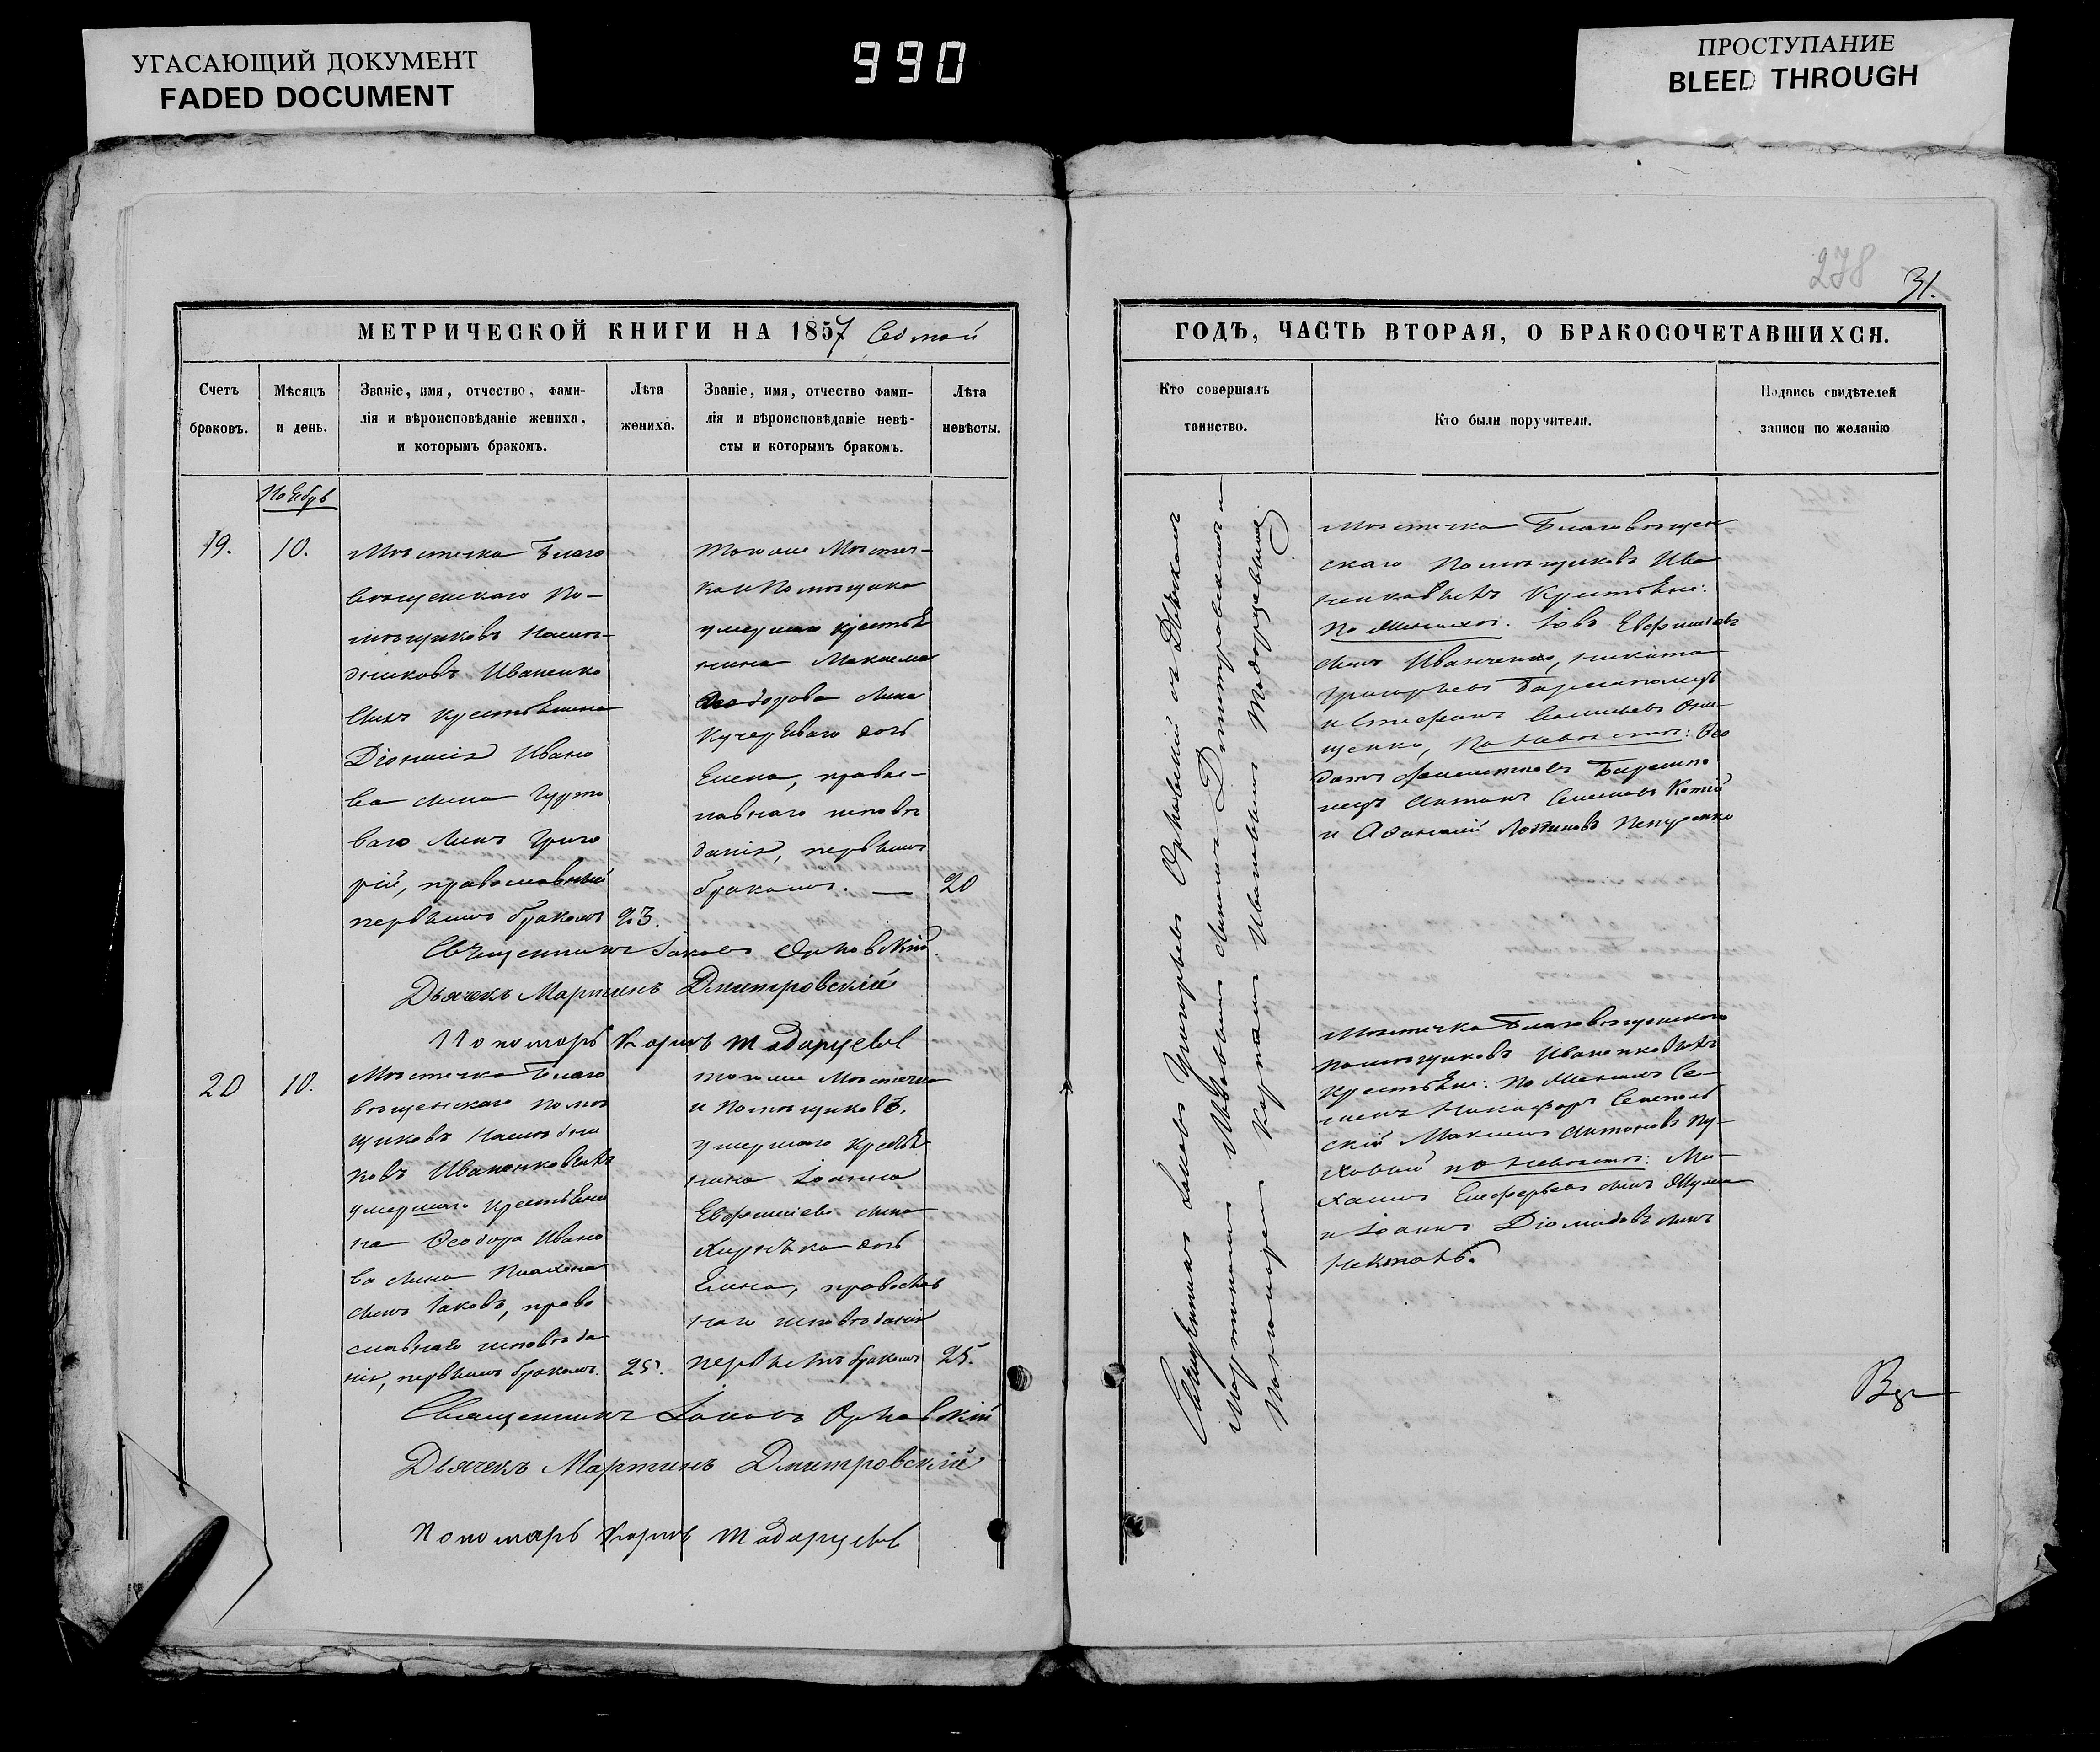 УГАСАЮЩИЙ ДОКУМЕНТ
FADED DOCUMENT
990
ПРОСТУПАНИЕ
BLEED THROUGH
278
31.
МЕТРИЧЕСКОЙ КНИГИ НА 1857 Седмой
Счетъ
браковъ.
Мѣсяцъ
и день.
Званіе, имя, отчество, фами-
лія и вѣроисповѣданіе жениха,
и которымъ бракомъ.
Лѣта
жениха.
Званіе, имя, отчество фами-
лія и вѣроисповѣданіе невѣ-
сты и которымъ бракомъ.
Лѣта
невѣсты.
Ноябрь
19.
10.
Мѣстечка Благо
вѣщенскаго По-
мѣщиковъ Наслѣ-
дниковъ Иваненко
выхъ крестьянина
Діонисія Ивано
ва сына Гурто
ваго сынъ Григо
рій, православный
первымъ бракомъ
23.
тогоже Мѣстеч-
ка и Помѣщика
умершаго крестья
нина Максима
Ѳеодорова сына
Кучеряваго дочь
Елена, правос-
лавнаго исповѣ
данія, первымъ
бракомъ. —
20
Священникъ Іаковъ Орловскій.
Дьячекъ Мартинъ Дмитровскій
Пономарь Карпъ
20
10.
Мѣстечка Благо
вѣщенскаго помѣ
щиковъ Наслѣдни
ковъ Иваненковыхъ
умершаго крестьяни
на Ѳеодора Ивано
ва сына
сынъ Іаковъ, право
славнаго исповѣда
нія, первымъ бракомъ.
25.
тогоже Мѣстечка
и Помѣщиковъ,
умершаго крестья
нина Іоанна
сына
дочь
Елена, православ
наго исповѣданія
первымъ бракомъ
25.
Священникъ Іаковъ Орловскій
Дьячекъ Мартинъ Дмитровскій
Пономарь Карпъ
ГОДЪ, ЧАСТЬ ВТОРАЯ, О БРАКОСОЧЕТАВШИХСЯ.
Кто совершалъ
таинство.
Кто были поручители.
Подпись свидѣтелей
записи по желанію
Священникъ Іаковъ Григорьевъ Орловскій съ Дьячкомъ
Мартиномъ Дмитровскимъ и
Пономаремъ Карпомъ Ивановымъ
Мѣстечка Благовѣщен
скаго Помѣщиковъ Ива
ненковыхъ крестьяне:
по женихѣ: Іовъ
сынъ Иванченко, Никита
Григорьевъ
и Стефанъ Васильевъ Они-
щенко, По невѣстѣ: Ѳео
Антонъ Семеновъ
и Афанасій
Мѣстечка Благовѣщенскаго
помѣщиковъ Иваненковыхъ
крестьяне: по женихѣ Се-
Никифоръ
скій Максимъ Антоновъ
по невѣстѣ: Ми-
хаилъ сынъ
и Іоаннъ Діомидовъ сынъ